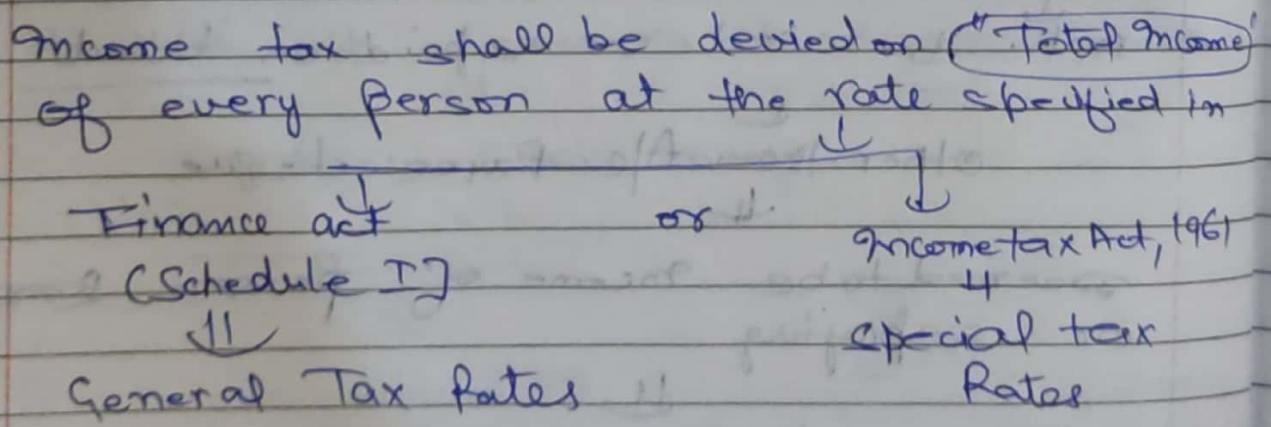 Income tax shall be devied on "Total Income"
of every person at the rate specified in
Finance act or Income tax Act, 1961
(Schedule I]
General Tax Rates
special tax
Rates